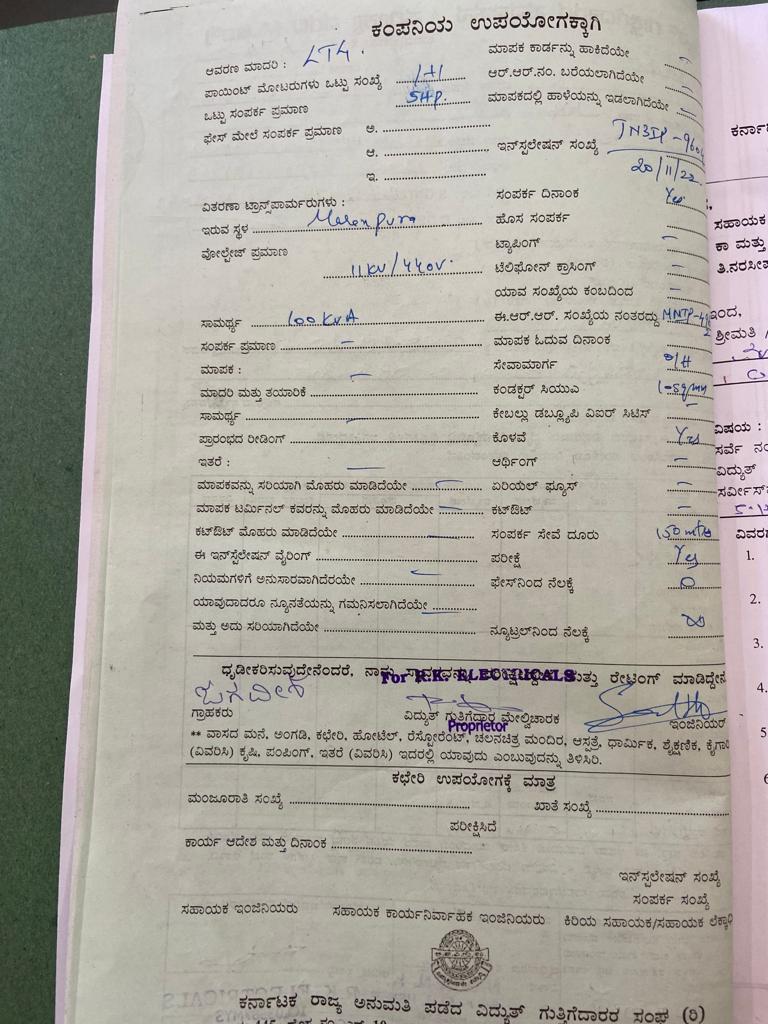 ಕಂಪನಿಯ ಉಪಯೋಗಕ್ಕಾಗಿ
ಆವರಣ ಮಾದರಿ : LT4.
ಮಾಪಕ ಕಾರ್ಡನ್ನು ಹಾಕಿದೆಯೇ
ಪಾಯಿಂಟ್ ಮೋಟರುಗಳು ಒಟ್ಟು ಸಂಖ್ಯೆ
ಆರ್.ಆರ್.ನಂ. ಬರೆಯಲಾಗಿದೆಯೇ
ಒಟ್ಟು ಸಂಪರ್ಕ ಪ್ರಮಾಣ 5HP.
ಮಾಪಕದಲ್ಲಿ ಹಾಳೆಯನ್ನು ಇಡಲಾಗಿದೆಯೇ
ಫೇಸ್ ಮೇಲೆ ಸಂಪರ್ಕ ಪ್ರಮಾಣ ಅ.
ಆ.
ಇನ್‌ಸ್ಟಲೇಷನ್ ಸಂಖ್ಯೆ
ಇ.
20/11/22
ಸಂಪರ್ಕ ದಿನಾಂಕ Yes
ವಿತರಣಾ ಟ್ರಾನ್ಸ್‌ಫಾರ್ಮರುಗಳು :
ಇರುವ ಸ್ಥಳ
ಹೊಸ ಸಂಪರ್ಕ
ವೋಲ್ಟೇಜ್ ಪ್ರಮಾಣ 11KV/440V.
ಟ್ಯಾಪಿಂಗ್ –
ಟೆಲಿಫೋನ್ ಕ್ರಾಸಿಂಗ್ –
ಯಾವ ಸಂಖ್ಯೆಯ ಕಂಬದಿಂದ –
ಸಾಮರ್ಥ್ಯ 100KVA
ಈ.ಆರ್.ಆರ್. ಸಂಖ್ಯೆಯ ನಂತರದ್ದು
ಸಂಪರ್ಕ ಪ್ರಮಾಣ –
ಮಾಪಕ ಓದುವ ದಿನಾಂಕ
ಮಾಪಕ : –
ಸೇವಾಮಾರ್ಗ O/H
ಮಾದರಿ ಮತ್ತು ತಯಾರಿಕೆ
ಕಂಡಕ್ಟರ್ ಸಿಯುಎ
ಸಾಮರ್ಥ್ಯ –
ಕೇಬಲ್ಲು ಡಬ್ಲ್ಯೂಪಿ ಎಐರ್ ಸಿಟಿಸ್ –
ಪ್ರಾರಂಭದ ರೀಡಿಂಗ್
ಕೊಳವೆ Yes
ಇತರೆ : –
ಆರ್ಥಿಂಗ್ –
ಮಾಪಕವನ್ನು ಸರಿಯಾಗಿ ಮೊಹರು ಮಾಡಿದೆಯೇ
ಏರಿಯಲ್ ಫ್ಯೂಸ್ –
ಮಾಪಕ ಟರ್ಮಿನಲ್ ಕವರನ್ನು ಮೊಹರು ಮಾಡಿದೆಯೇ
ಕಟ್‌ಔಟ್ –
ಕಟ್‌ಔಟ್ ಮೊಹರು ಮಾಡಿದೆಯೇ
ಸಂಪರ್ಕ ಸೇವೆ ದೂರು 150 mts
ಈ ಇನ್‌ಸ್ಟಲೇಷನ್ ವೈರಿಂಗ್
ಪರೀಕ್ಷೆ Yes
ನಿಯಮಗಳಿಗೆ ಅನುಸಾರವಾಗಿದೆರಯೇ
ಫೇಸ್‌ನಿಂದ ನೆಲಕ್ಕೆ
ಯಾವುದಾದರೂ ನ್ಯೂನತೆಯನ್ನು ಗಮನಿಸಲಾಗಿದೆಯೇ
ಮತ್ತು ಅದು ಸರಿಯಾಗಿದೆಯೇ
ನ್ಯೂಟ್ರಲ್‌ನಿಂದ ನೆಲಕ್ಕೆ
ಧೃಡೀಕರಿಸುವುದೇನೆಂದರೆ, ನಾವು
ಮತ್ತು ರೇಟಿಂಗ್ ಮಾಡಿದ್ದೇನೆ
For R.K. ELECTRICALS
ಜಗದೀಶ
ಗ್ರಾಹಕರು
ವಿದ್ಯುತ್ ಗುತ್ತಿಗೆದಾರ ಮೇಲ್ವಿಚಾರಕ
ಇಂಜಿನಿಯರ್
Proprietor
** ವಾಸದ ಮನೆ, ಅಂಗಡಿ, ಕಛೇರಿ, ಹೋಟೆಲ್, ರೆಸ್ಟೋರೆಂಟ್, ಚಲನಚಿತ್ರ ಮಂದಿರ, ಆಸ್ಪತ್ರೆ, ಧಾರ್ಮಿಕ, ಶೈಕ್ಷಣಿಕ,
(ವಿವರಿಸಿ) ಕೃಷಿ, ಪಂಪಿಂಗ್, ಇತರೆ (ವಿವರಿಸಿ) ಇದರಲ್ಲಿ ಯಾವುದು ಎಂಬುವುದನ್ನು ತಿಳಿಸಿರಿ.
ಕಛೇರಿ ಉಪಯೋಗಕ್ಕೆ ಮಾತ್ರ
ಮಂಜೂರಾತಿ ಸಂಖ್ಯೆ
ಖಾತೆ ಸಂಖ್ಯೆ
ಪರೀಕ್ಷಿಸಿದೆ
ಕಾರ್ಯ ಆದೇಶ ಮತ್ತು ದಿನಾಂಕ
ಇನ್‌ಸ್ಪಲೇಷನ್ ಸಂಖ್ಯೆ
ಸಂಪರ್ಕ ಸಂಖ್ಯೆ
ಸಹಾಯಕ ಇಂಜಿನಿಯರು
ಸಹಾಯಕ ಕಾರ್ಯನಿರ್ವಾಹಕ ಇಂಜಿನಿಯರು
ಕಿರಿಯ ಸಹಾಯಕ/ಸಹಾಯಕ
ಕರ್ನಾಟಕ ರಾಜ್ಯ ಅನುಮತಿ ಪಡೆದ ವಿದ್ಯುತ್ ಗುತ್ತಿಗೆದಾರರ ಸಂಘ (ರಿ)
ಸಹಾಯಕ
ಕಾ ಮತ್ತು
ಇಂದ,
ಶ್ರೀಮತಿ /
ವಿಷಯ :
ಸರ್ವೆ ನಂ
ವಿದ್ಯುತ್
1.
2.
3.
4.
5